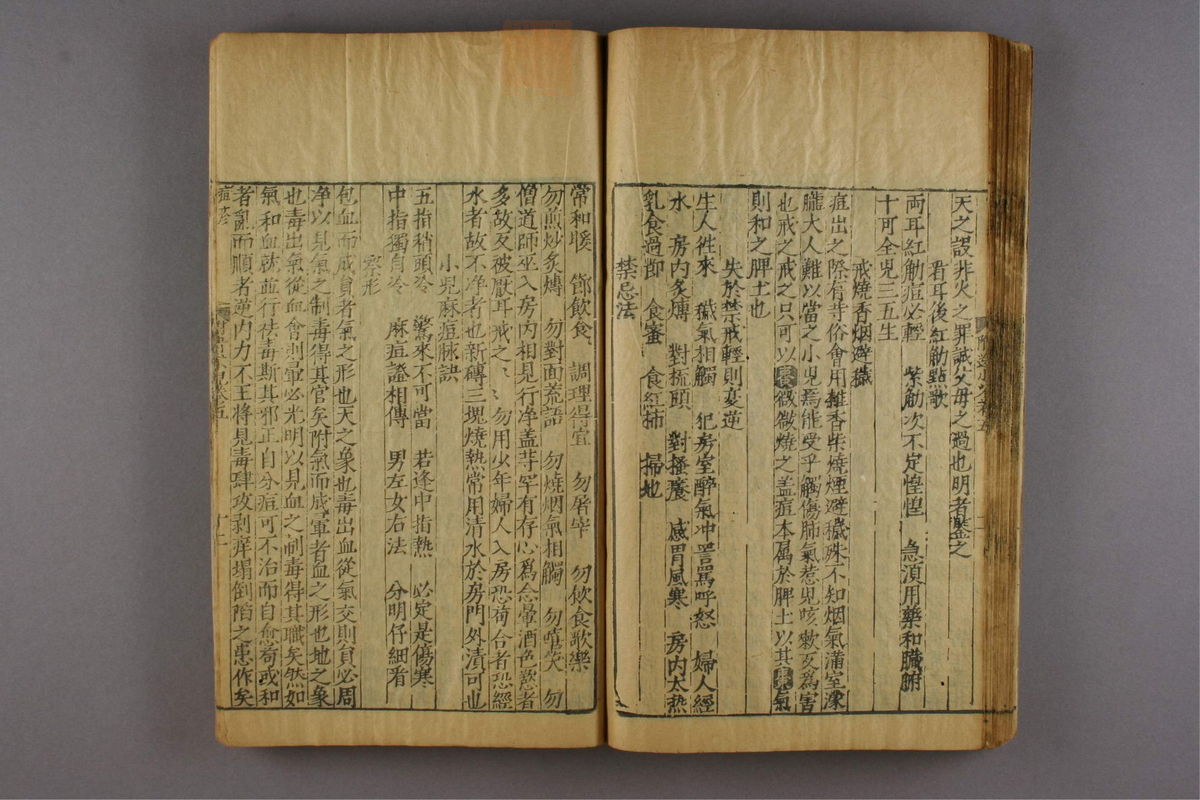 天之誤非火之罪誠父母之過也明者鑒之
看耳後紅觔點歌
両耳紅觔痘必輕 紫觔次不定惶惶 急湏用藥和臟腑
十可全兇三五生
戒燒香烟避穢
痘出之際有等俗會用雄香柴燒煙避穢殊不知烟氣蒲室濛
朧大人難以當之小兒焉能受乎觸傷肺氣惹兒咳嗽反為害
也戒之戒之只可以棗微微燒之盖痘本属於脾土以其棗氣
則和之脾土也
失於禁戒輕則変逆
生人徃來 穢氣相觸 犯房室醉氣冲詈罵呼怒 婦人經
水 房内炙煿 對梳頭 對搔癢 感冒風寒 房内太热
乳食過節 食蜜 食紅柿 掃地
禁忌法
常和暖 節飲食 調理得宜 勿屠宰 勿飲食歌樂
勿煎炒炙煿 勿對面荒語 勿燒烟氣相觸 勿嘻笑 勿
僧道師巫入房内相見行净盖䓁罕有存心爲念暈酒色慾者
多故反被厭耳戒之〻 勿用少年婦人入房恐荷合者恐經
水者故不净者也新磚三塊燒熱常用清水於房門外漬可也
小兒麻痘脉訣
五指稍頭冷 驚來不可當 若逢中指熱 必定是傷寒
中指獨自冷 麻痘證相傳 男左女右法 分明仔細看
察形
包血而成負者氣之形也天之象也毒出血從氣交則負必周
净以見氣之制毒得其官矣附氣而成暈者血之形也地之象
也毒出氣從血會則暈必光明以見血之制毒得其職矣然如
氣和血就並行祛毒斯其邪正自分痘可不治而自愈苟或和
者亂而順者逆内力不王將見毒肆攻剥痒塌倒陷之患作矣
十二